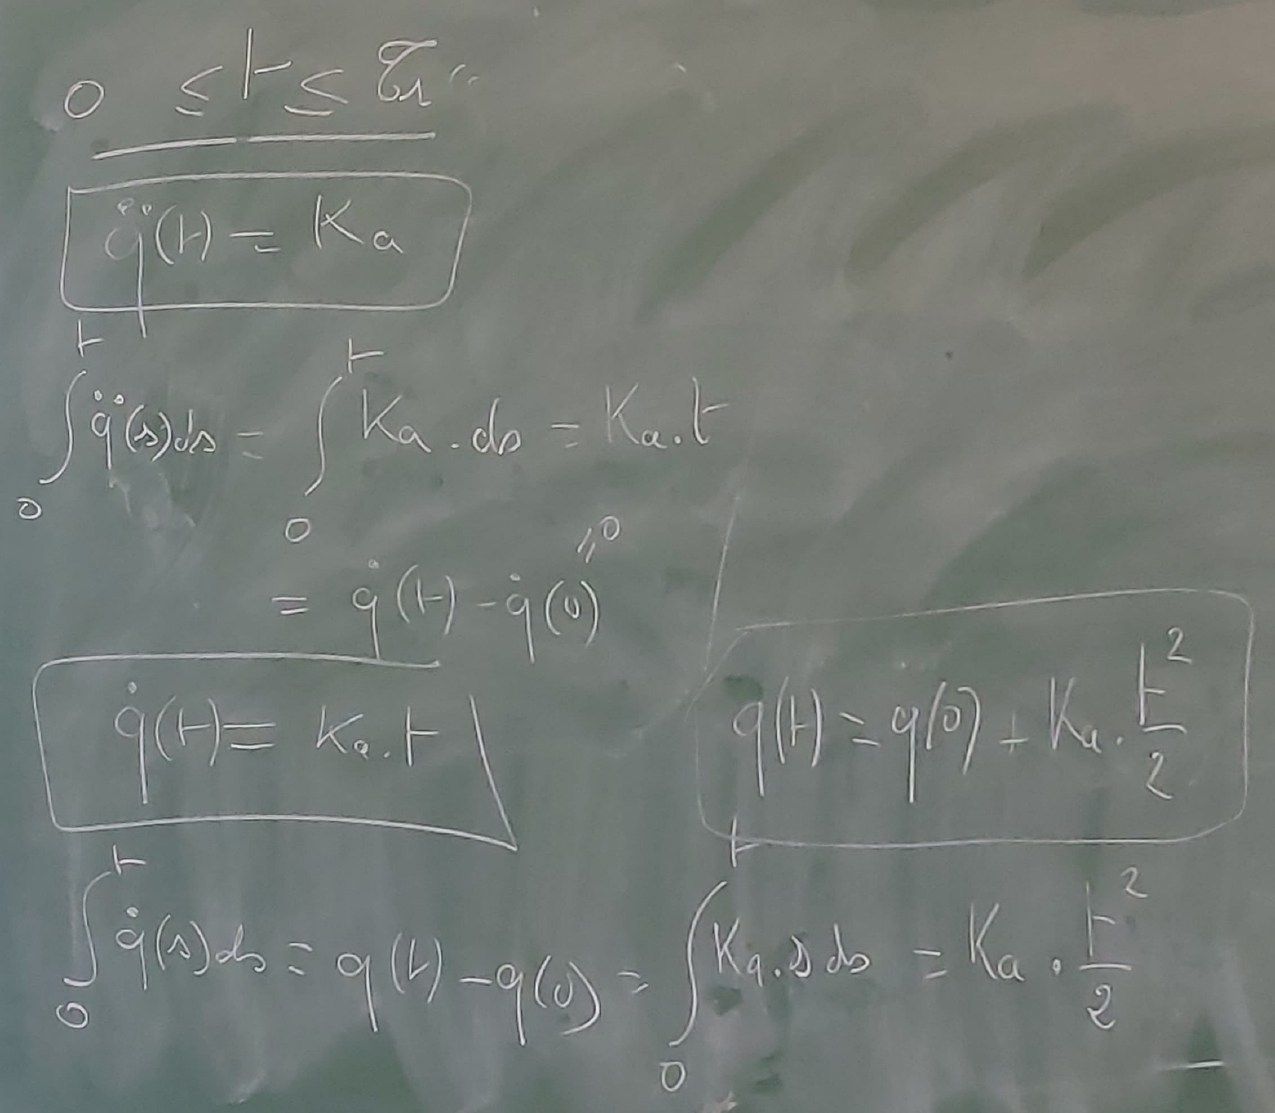 0 ≤ t ≤ τ₁
q̈(t) = Ka
∫₀ᵗ q̈(s)ds = ∫₀ᵗ Ka . ds = Ka.t
= q̇(t) - q̇(0) =0
q̇(t) = Ka.t
q(t) = q(0) + Ka. t²/2
∫₀ᵗ q̇(s)ds = q(t) - q(0) = ∫₀ᵗ Ka.s ds = Ka . t²/2